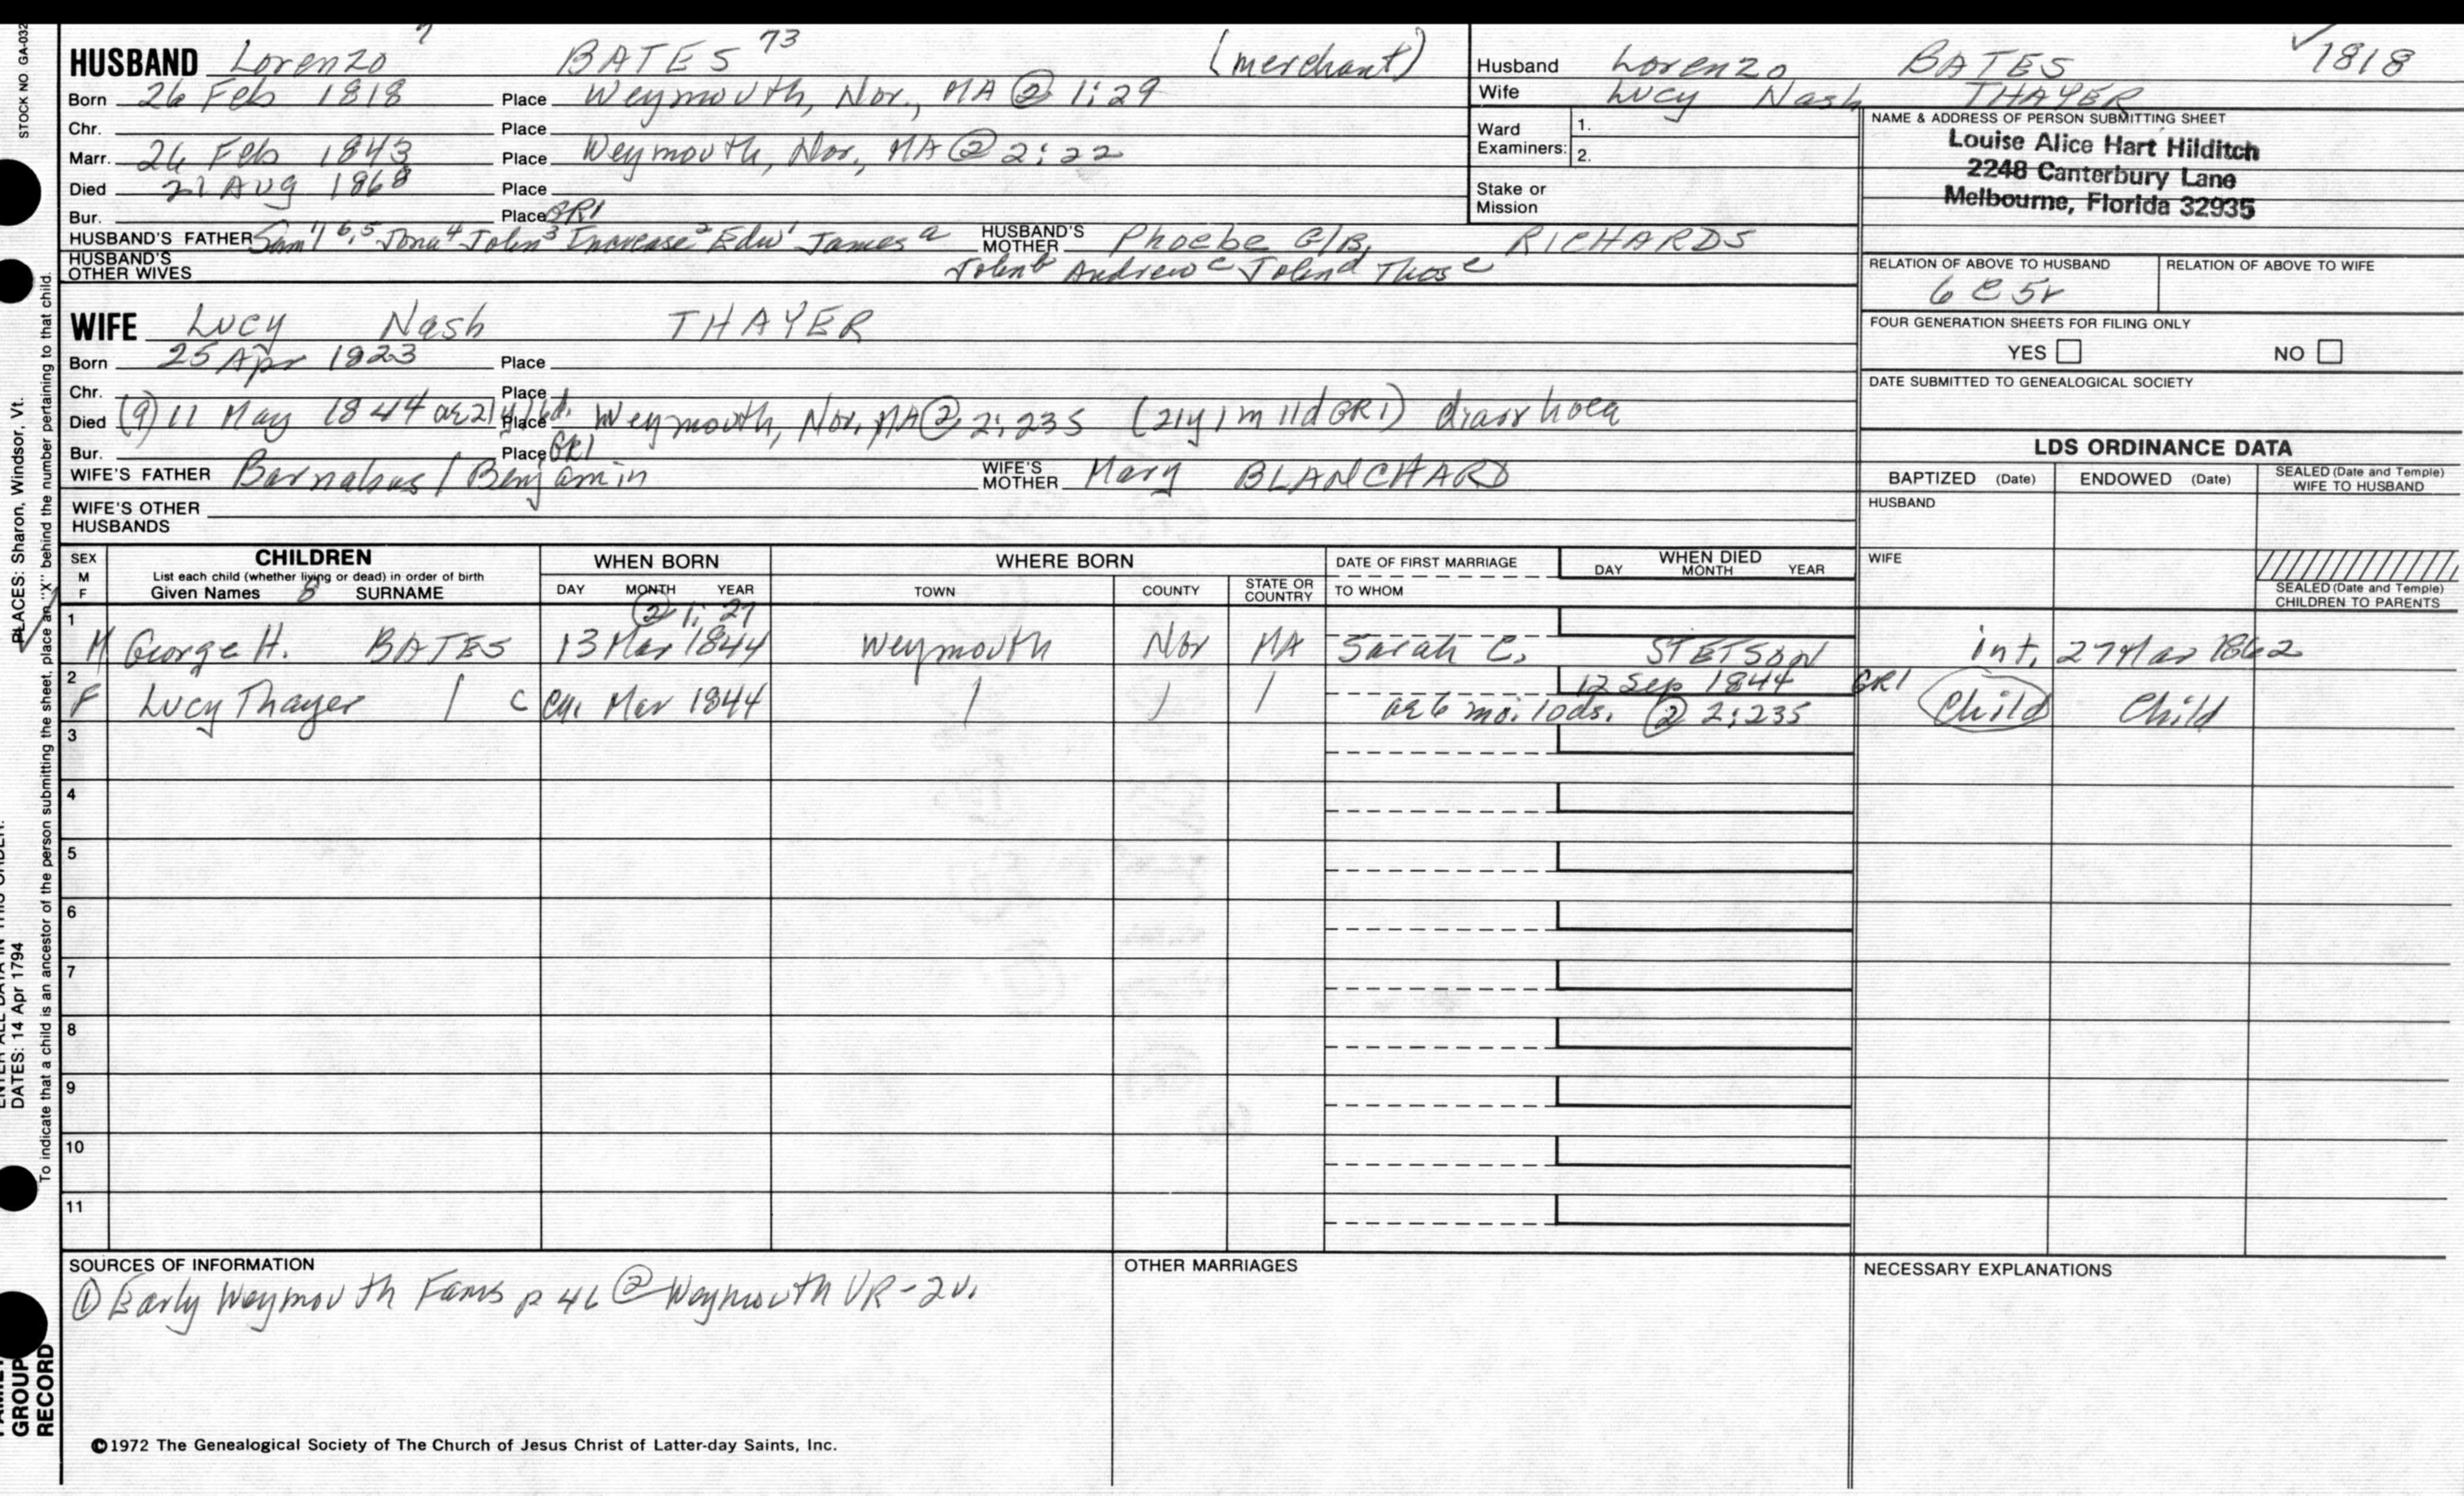 STOCK NO GA-032
HUSBAND Lorenzo 7 BATES 73 (merchant)
Born 26 Feb 1818 Place Weymouth, Nor., MA ② 1:29
Chr. Place
Marr. 26 Feb 1843 Place Weymouth, Nor., MA ② 2:22
Died 21 Aug 1868 Place
Bur. Place GR1
HUSBAND'S FATHER Sam'l 6,5 Jona 4 John 3 Increase 2 Edw 1 James a HUSBAND'S MOTHER Phoebe G/B, RICHARDS
HUSBAND'S OTHER WIVES John b Andrew c John d Thos e
Husband Lorenzo BATES ✓1818
Wife Lucy Nash THAYER
Ward Examiners: 1.
2.
Stake or Mission
NAME & ADDRESS OF PERSON SUBMITTING SHEET
Louise Alice Hart Hilditch
2248 Canterbury Lane
Melbourne, Florida 32935
RELATION OF ABOVE TO HUSBAND RELATION OF ABOVE TO WIFE
6 C 5r
FOUR GENERATION SHEETS FOR FILING ONLY
YES NO
DATE SUBMITTED TO GENEALOGICAL SOCIETY
WIFE Lucy Nash THAYER
Born 25 Apr 1823 Place
Chr. Place
Died (9) 11 May 1844 ae 21y 16d. Place Weymouth, Nor, MA ② 2:235 (21y 1m 11d GR1) diarrhoea
Bur. Place GR1
WIFE'S FATHER Barnabas / Benjamin WIFE'S MOTHER Mary BLANCHARD
WIFE'S OTHER HUSBANDS
LDS ORDINANCE DATA
BAPTIZED (Date) ENDOWED (Date) SEALED (Date and Temple) WIFE TO HUSBAND
HUSBAND
WIFE
SEALED (Date and Temple) CHILDREN TO PARENTS
SEX M F CHILDREN List each child (whether living or dead) in order of birth Given Names SURNAME
WHEN BORN DAY MONTH YEAR
WHERE BORN TOWN COUNTY STATE OR COUNTRY
DATE OF FIRST MARRIAGE TO WHOM
WHEN DIED DAY MONTH YEAR
② 1:27
1 M George H. BATES 13 Mar 1844 Weymouth Nor MA Sarah C. STETSON int. 27 Mar 1862
12 Sep 1844 GR1
2 F Lucy Thayer / C Mar 1844 / / / ae 6 mo. 10 ds. ② 2:235 Child Child
3
4
5
6
7
8
9
10
11
SOURCES OF INFORMATION
① Early Weymouth Fams p 46 ② Weymouth VR-2v.
OTHER MARRIAGES
NECESSARY EXPLANATIONS
©1972 The Genealogical Society of The Church of Jesus Christ of Latter-day Saints, Inc.
PLACES: Sharon, Windsor, Vt.
To indicate that a child is an ancestor of the person submitting the sheet, place an "X" behind the number pertaining to that child.
DATES: 14 Apr 1794
GROUP
RECORD